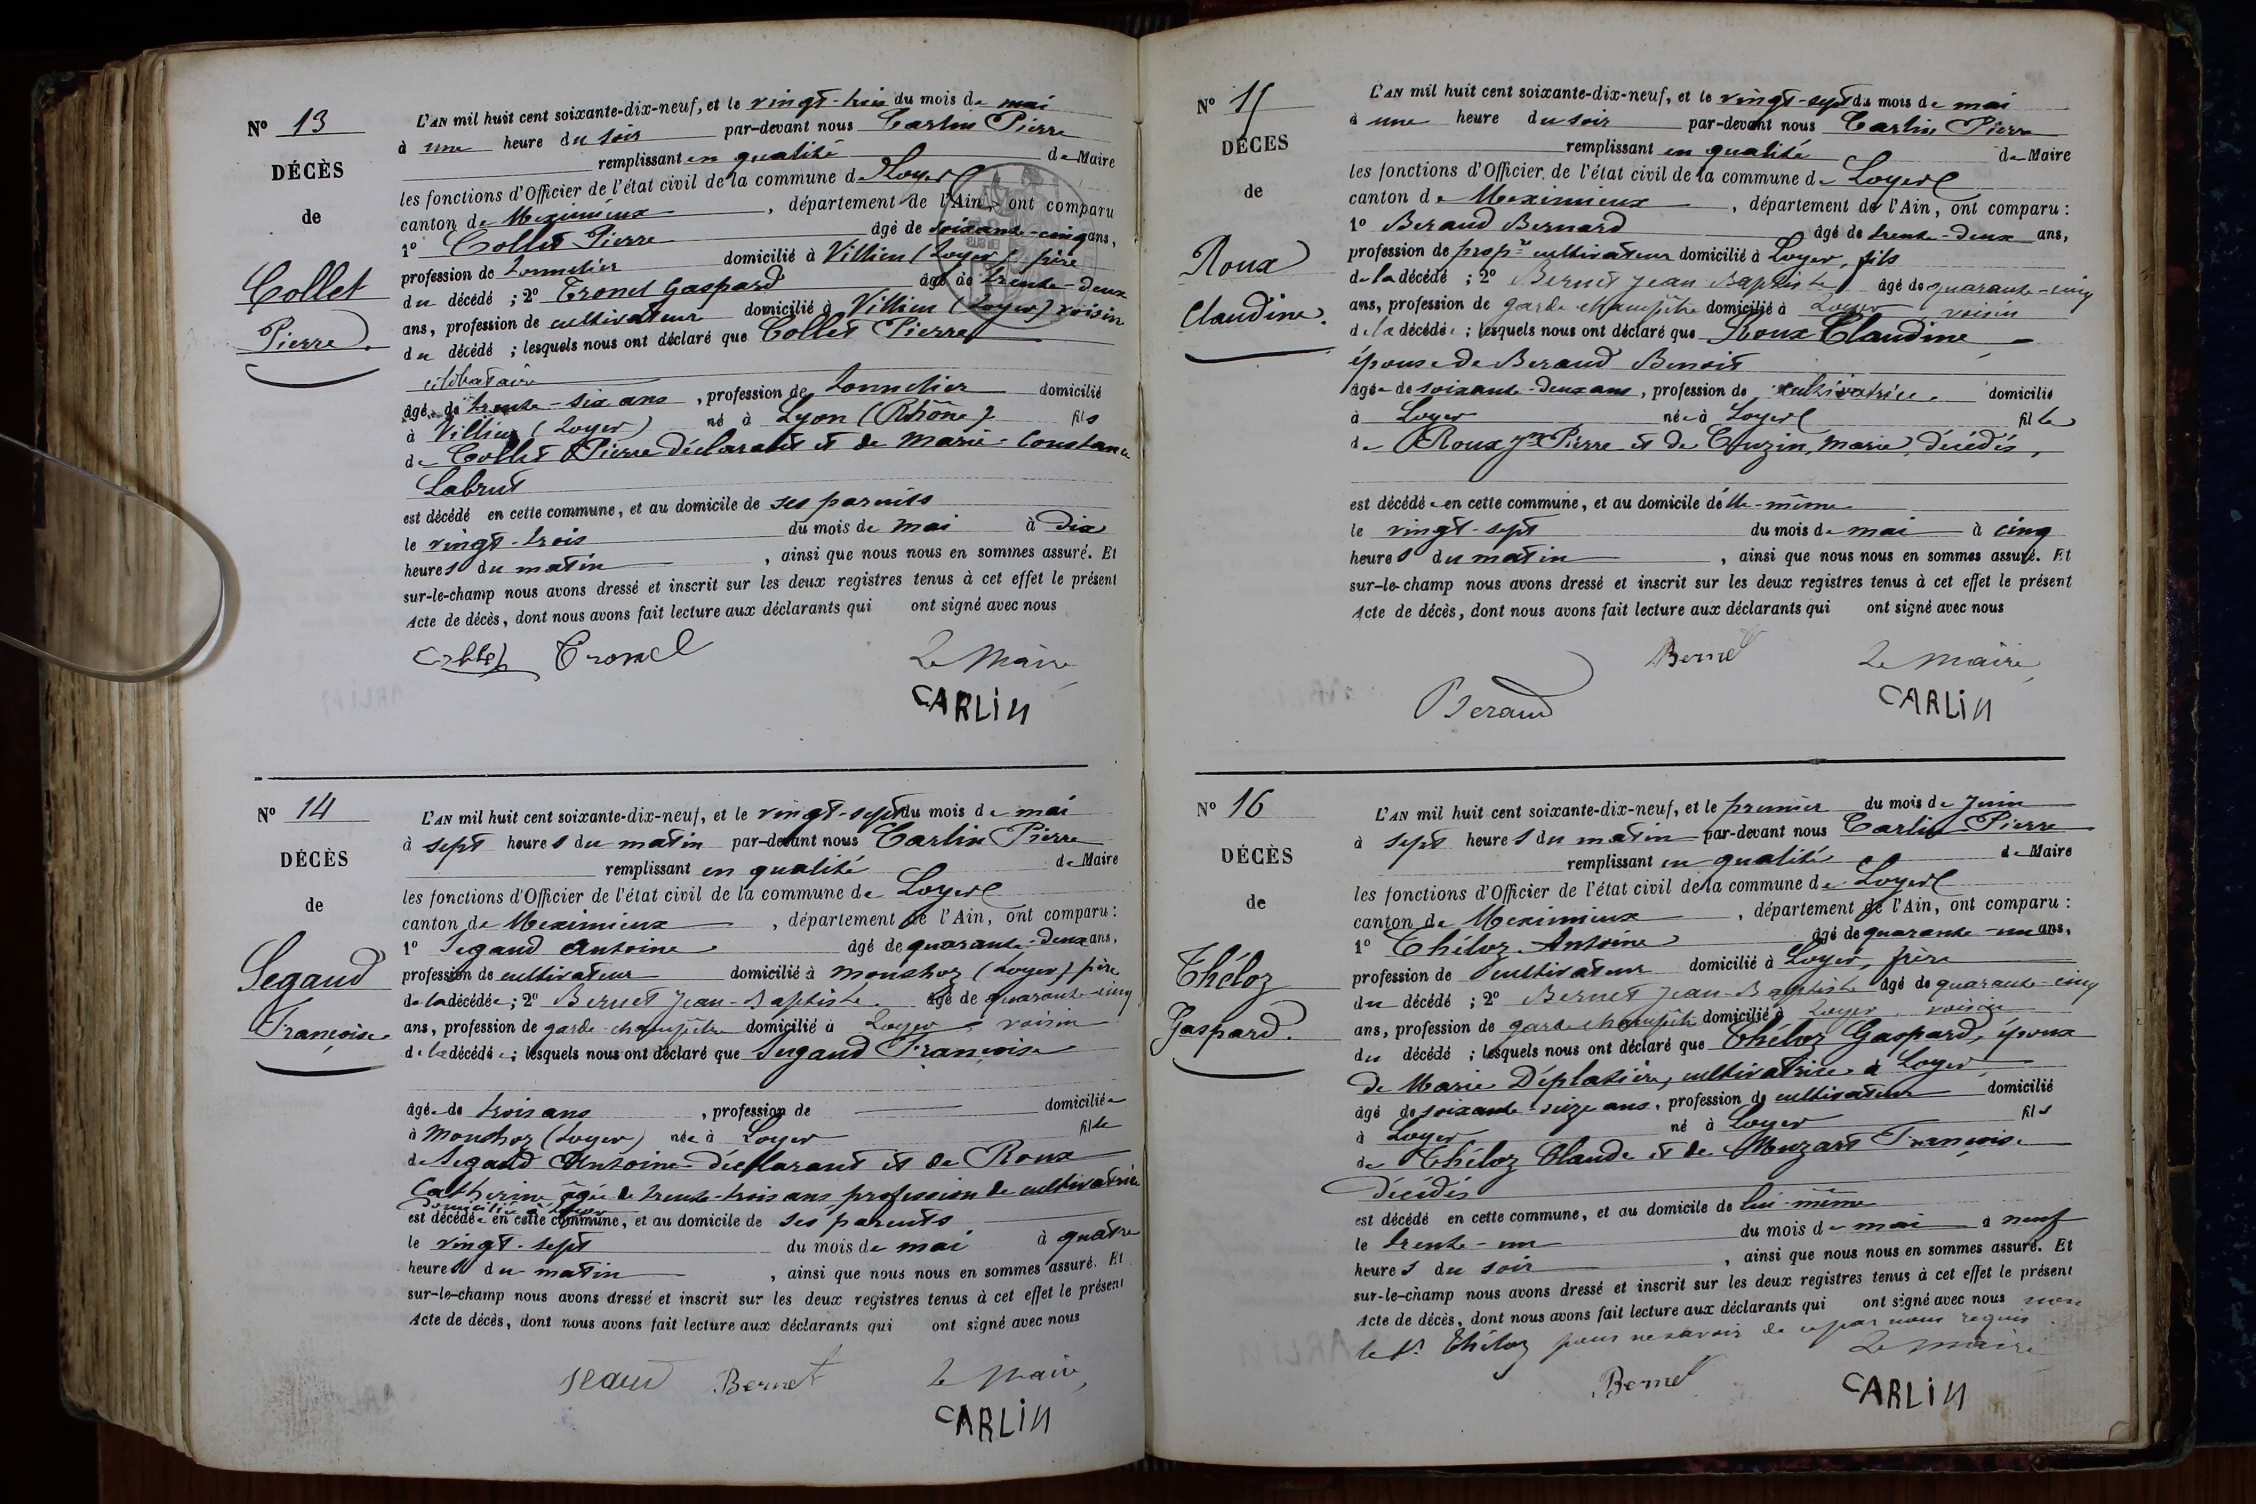 N° 13
DÉCÈS
de
Collet
Pierre.
L'AN mil huit cent soixante-dix-neuf, et le vingt-trois du mois de mai
à une heure du soir par-devant nous Carlin Pierre
remplissant en qualité de Maire
les fonctions d'Officier de l'état civil de la commune de Loyes
canton de Meximieux, département de l'Ain, ont comparu
1° Collet Pierre âgé de soixante-cinq ans,
profession de tonnelier domicilié à Villieu (Loyes) père
du décédé ; 2° Tronel Gaspard âgé de trente-deux
ans, profession de cultivateur domicilié à Villieu (Loyes) voisin
du décédé ; lesquels nous ont déclaré que Collet Pierre
célibataire
âgé de trente-six ans, profession de tonnelier domicilié
à Villieu (Loyes) né à Lyon (Rhône) fils
de Collet Pierre déclarant et de Marie-Constance
Labrut
est décédé en cette commune, et au domicile de ses parents
le vingt-trois du mois de mai à dix
heures du matin, ainsi que nous nous en sommes assuré. Et
sur-le-champ nous avons dressé et inscrit sur les deux registres tenus à cet effet le présent
Acte de décès, dont nous avons fait lecture aux déclarants qui ont signé avec nous
Collet Tronel Le Maire
CARLIN
N° 14
DÉCÈS
de
Segaud
Françoise
L'AN mil huit cent soixante-dix-neuf, et le vingt-sept du mois de mai
à sept heures du matin par-devant nous Carlin Pierre
remplissant en qualité de Maire
les fonctions d'Officier de l'état civil de la commune de Loyes
canton de Meximieux, département de l'Ain, ont comparu :
1° Segaud Antoine âgé de quarante-deux ans,
profession de cultivateur domicilié à Monthoz (Loyes) père
de la décédée ; 2° Bernet Jean-Baptiste âgé de quarante-cinq
ans, profession de garde-champêtre domicilié à Loyes voisin
de la décédée ; lesquels nous ont déclaré que Segaud Françoise
âgée de trois ans, profession de domiciliée
à Monthoz (Loyes) née à Loyes fille
de Segaud Antoine déclarant et de Roux
Catherine âgée de trente-trois ans profession de cultivatrice
domiciliée à Loyes
est décédée en cette commune, et au domicile de ses parents
le vingt-sept du mois de mai à quatre
heures du matin, ainsi que nous nous en sommes assuré. Et
sur-le-champ nous avons dressé et inscrit sur les deux registres tenus à cet effet le présent
Acte de décès, dont nous avons fait lecture aux déclarants qui ont signé avec nous
Bernet Le Maire
CARLIN
N° 15
DÉCÈS
de
Roux
Claudine.
L'AN mil huit cent soixante-dix-neuf, et le vingt-sept du mois de mai
à une heure du soir par-devant nous Carlin Pierre
remplissant en qualité de Maire
les fonctions d'Officier de l'état civil de la commune de Loyes
canton de Meximieux, département de l'Ain, ont comparu :
1° Beraud Bernard âgé de trente-deux ans,
profession de propre cultivateur domicilié à Loyes, fils
de la décédé ; 2° Bernet Jean Baptiste âgé de quarante-cinq
ans, profession de garde champêtre domicilié à Loyes voisin
de la décédée ; lesquels nous ont déclaré que Roux Claudine
épouse de Beraud Benoit
âgée de soixante-deux ans, profession de cultivatrice domicilié
à Loyes née à Loyes fille
de Roux Jn Pierre et de Cuzin, Marie, décédés,
est décédée en cette commune, et au domicile d'elle-même
le vingt-sept du mois de mai à cinq
heures du matin, ainsi que nous nous en sommes assuré. Et
sur-le-champ nous avons dressé et inscrit sur les deux registres tenus à cet effet le présent
Acte de décès, dont nous avons fait lecture aux déclarants qui ont signé avec nous
Bernet Le Maire
Beraud CARLIN
N° 16
DÉCÈS
de
Théloz
Gaspard.
L'AN mil huit cent soixante-dix-neuf, et le premier du mois de Juin
à sept heures du matin par-devant nous Carlin Pierre
remplissant en qualité de Maire
les fonctions d'Officier de l'état civil de la commune de Loyes
canton de Meximieux, département de l'Ain, ont comparu :
1° Théloz Antoine âgé de quarante-un ans,
profession de cultivateur domicilié à Loyes, frère
du décédé ; 2° Bernet Jean-Baptiste âgé de quarante-cinq
ans, profession de garde champêtre domicilié à Loyes, voisin
du décédé ; lesquels nous ont déclaré que Théloz Gaspard, époux
de Marie Déplatière, cultivatrice à Loyes
âgé de soixante-seize ans, profession de cultivateur domicilié
à Loyes né à Loyes fils
de Théloz Claude et de Muzart Françoise
décédés
est décédé en cette commune, et au domicile de lui-même
le trente-un du mois de mai à neuf
heures du soir, ainsi que nous nous en sommes assuré. Et
sur-le-champ nous avons dressé et inscrit sur les deux registres tenus à cet effet le présent
Acte de décès, dont nous avons fait lecture aux déclarants qui ont signé avec nous non
le Sr Théloz pour ne savoir de ce par nous requis
Le Maire
Bernet CARLIN